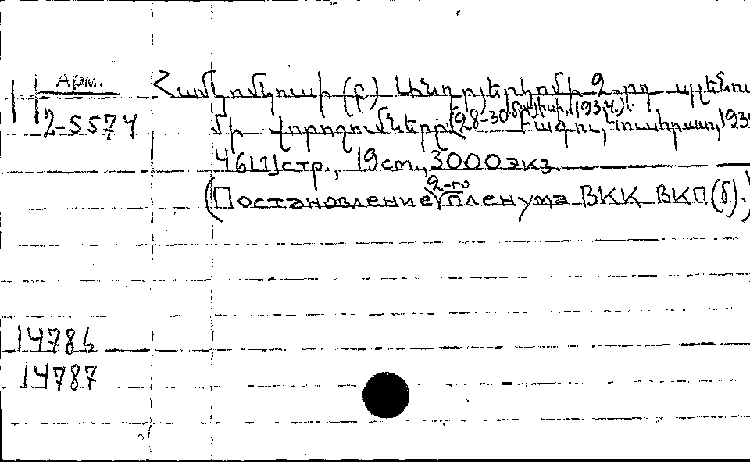 Арм.
2-5574
Համկոմկուսի (բ) Լենդրյերկոմի 2-րդ պլենու
մի վորոշումները (28-30 մայիսի, 1934 թ.). Բագու, 193
46[1]стр., 19cm., 3000 экз.
(Постановление 2-го пленума ВКК ВКП(б).)
14786
14787